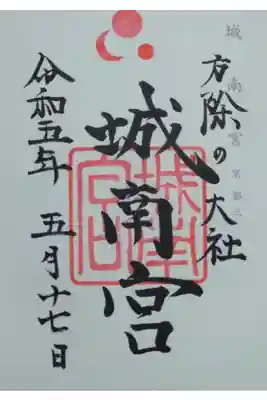 城南宮
方除の大社
城南宮
令和五年 五月十七日